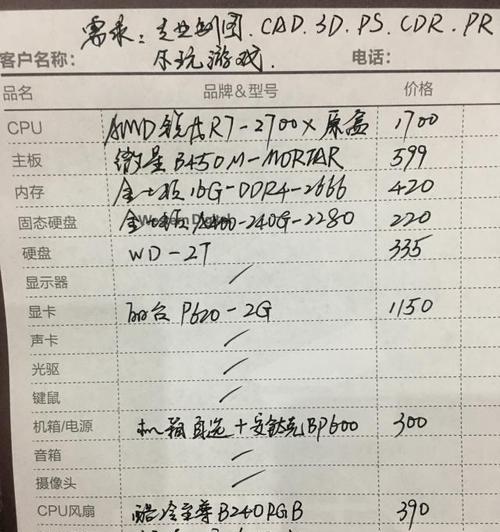 需求：专业制图.CAD.3D.PS.CDR.PR
客户名称： 乐玩游戏. 电话：
品名 品牌&型号 价格
CPU AMD锐龙R7-2700X 原盒 1700
主板 微星B450M-MORTAR 599
内存 金士顿16G-DDR4-2666 420
固态硬盘 金士顿A400-240G-2280 220
硬盘 WD-2T 335
显示器 /
显卡 丽台P620-2G 1150
声卡 /
光驱 /
键鼠 /
机箱/电源 机箱自选+安钛克BP600 300
音箱 /
摄像头 /
CPU风扇 酷冷至尊B240RGB 390